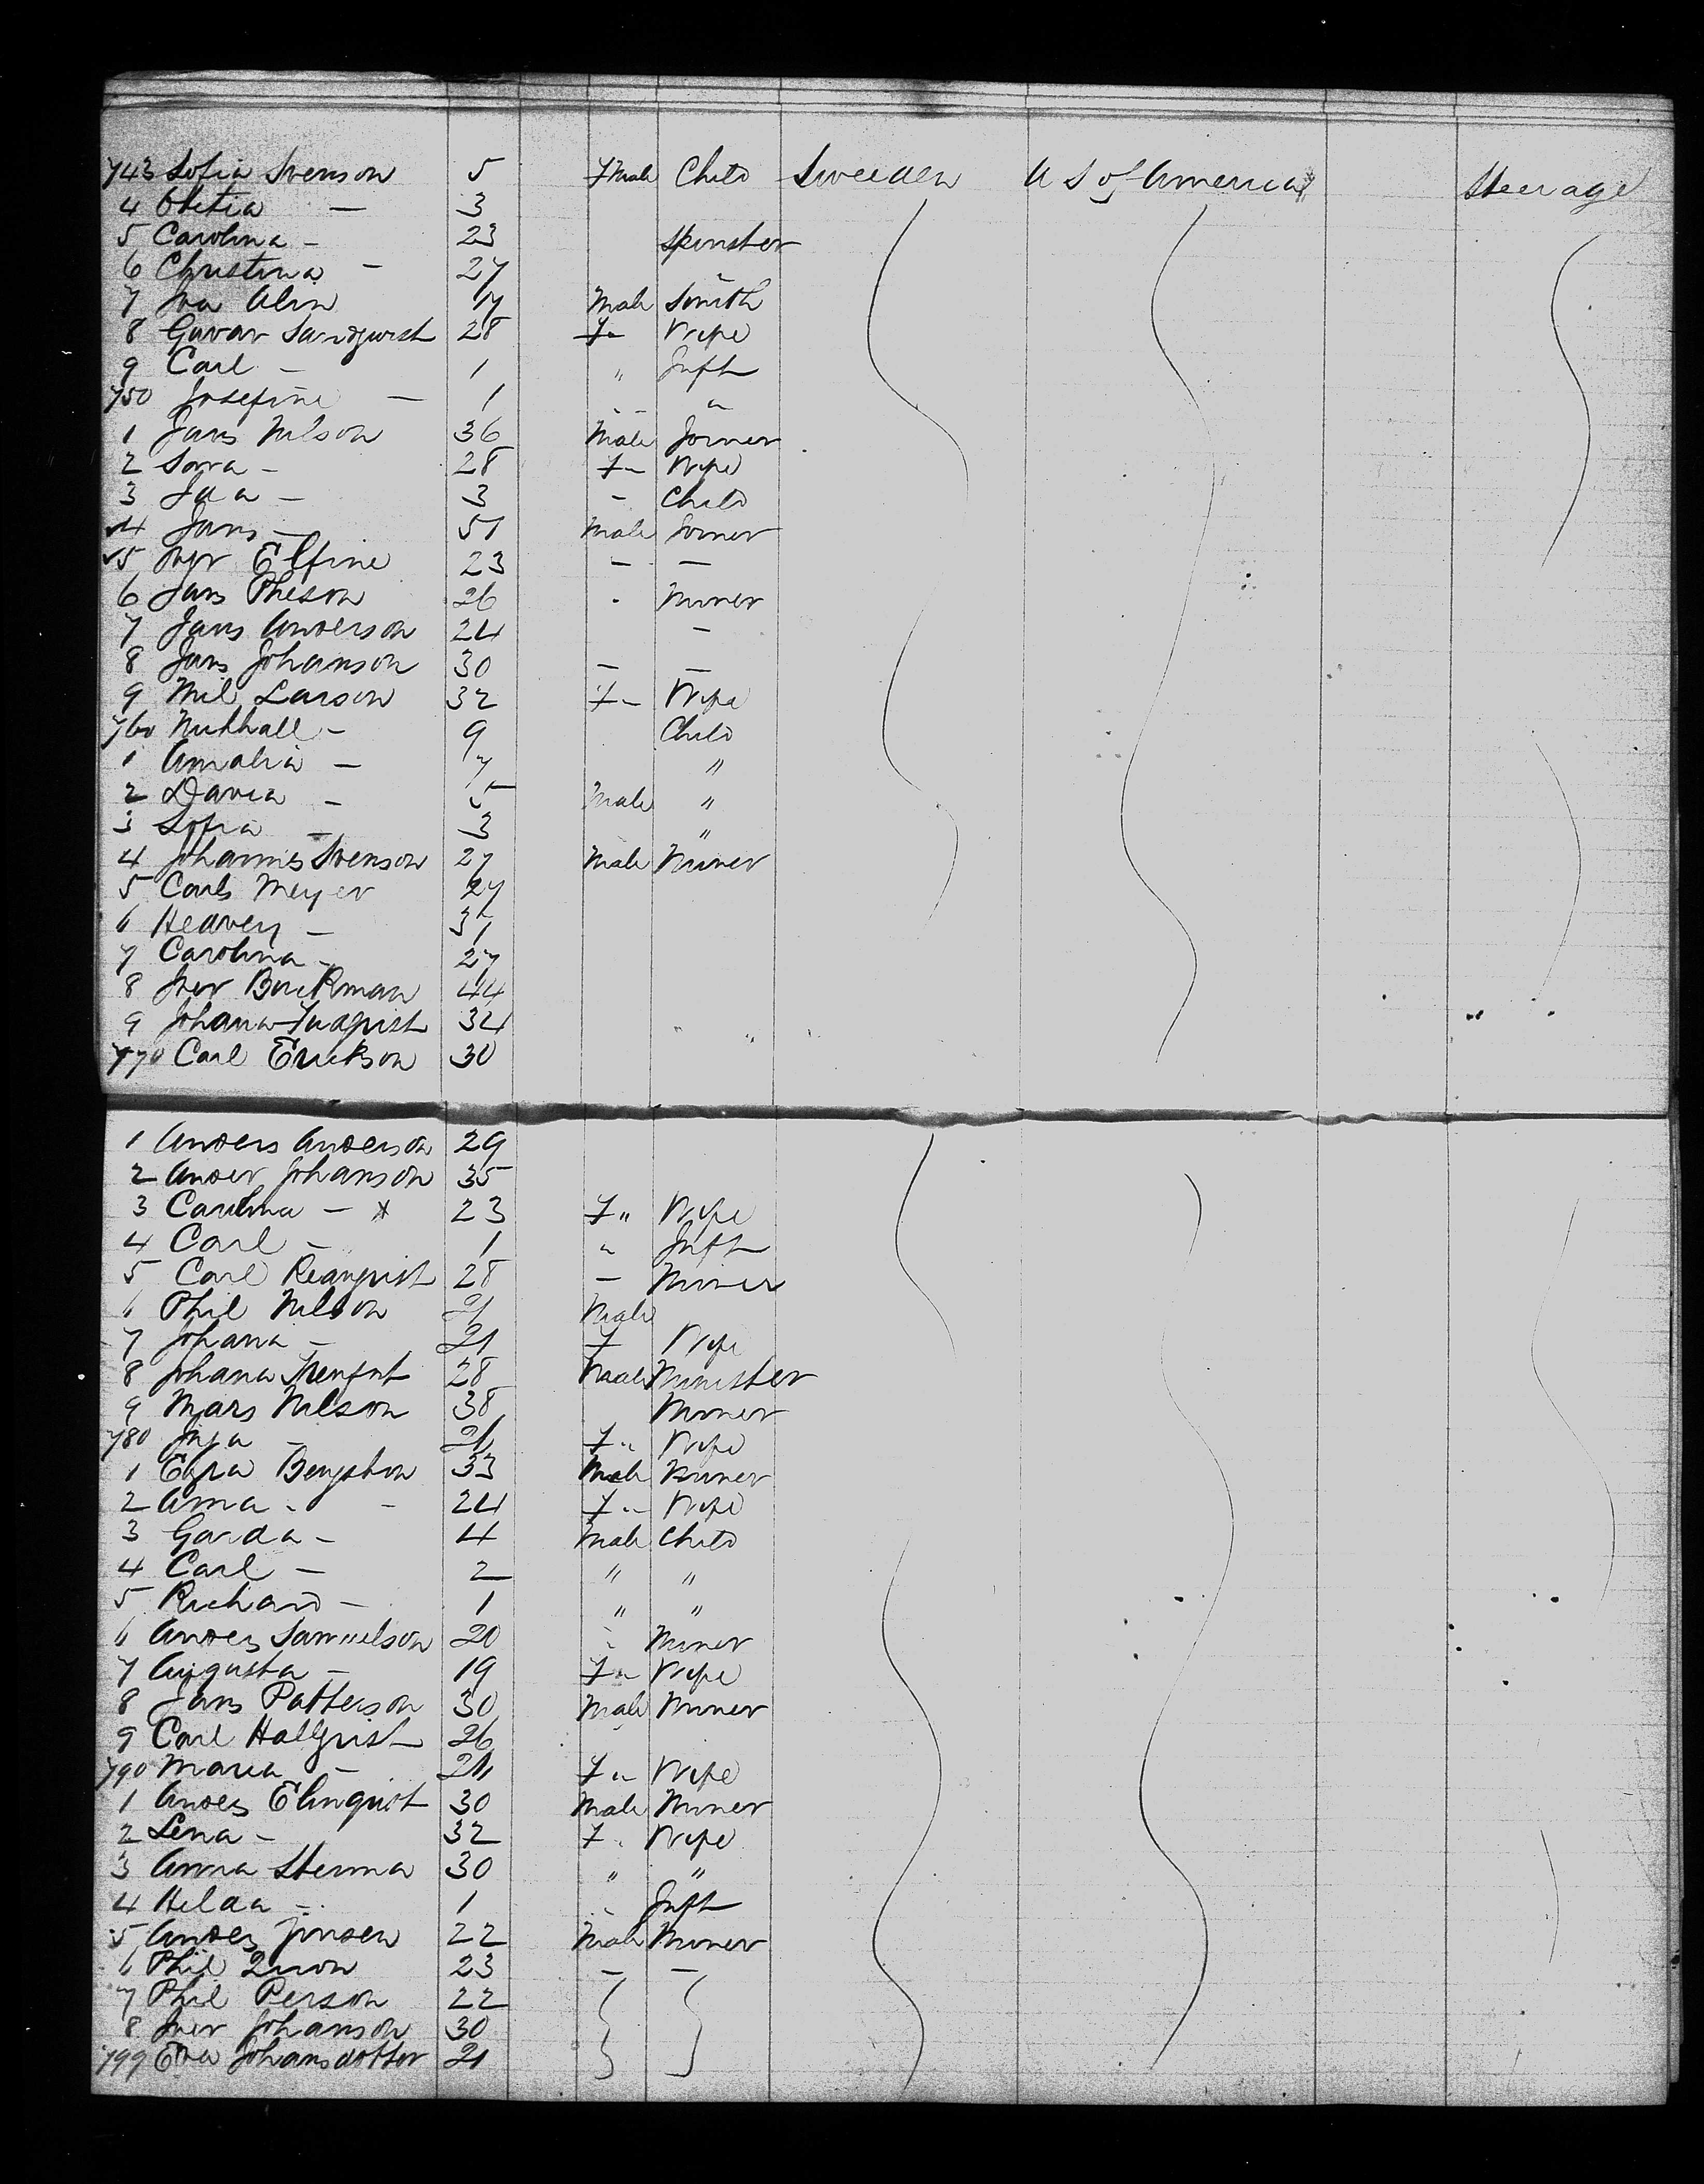 743 Sofia Svenson 5 Fmale Child Sweeden U S of America Steerage
4 — 3
5 Carolina - 23 Spinster
6 Christina - 27
7 Alin 17 Male Smith
8 28 F- Wife
9 Carl - 1 " Inft
750 Josefine — 1 "
1 Jans Nilson 36 Male Joiner
2 - 28 F- Wife
3 Ida - 3 - Child
4 Jans - 51 Male Joiner
5 Elfine 23 - -
6 Jans 26 Miner
7 Jans Anderson 24 -
8 Jans Johanson 30 - -
9 Nil Larson 32 F- Wife
760 - 9 Child
1 Amalia - 7 "
2 David - 5 Male "
3 Sofia - 3 "
4 Johannis Svenson 27 Male Miner
5 Carls Meyer 27
6 - 31
7 Carolina - 27
8 44
9 Johana 34
770 Carl Erickson 30
1 Anders Anderson 29
2 Ander Johanson 35
3 Carolina - x 23 F" Wife
4 Carl - 1 " Inft
5 Carl 28 - Miner
6 Phil Nilson 21 Male
7 Johana - 21 F Wife
8 Johana 28 Male Minister
9 Mars Nilson 38 Miner
780 Inga - 21 F" Wife
1 33 Male Miner
2 Anna - 24 F- Wife
3 Garda - 4 Male Child
4 Carl - 2 " "
5 Richard - 1 " "
6 Anders Samuelson 20 Miner
7 Augusta - 19 F- Wife
8 Jans Patterson 30 Male Miner
9 Carl Hallqrist 26
790 Maria - 21 F- Wife
1 Anders Elmquist 30 Male Miner
2 Lena - 32 F. Wife
3 Anna 30 " "
4 Hilda - 1 Inft
5 Anders Jonsen 22 Male Miner
6 Phil 23 - -
7 Phil Person 22
8 Johanson 30
799 Eva Johansdotter 21